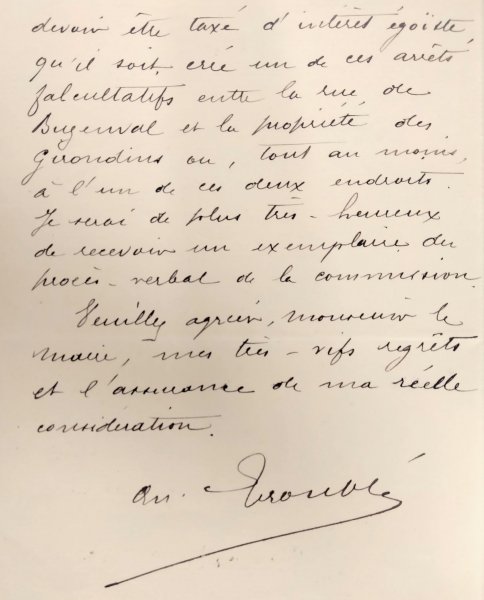 devoir être taxé d'intérêt égoïste,
qu'il soit créé un de ces arrêts
falcultatifs entre la rue de
Buzenval et la propriété des
Girondins ou, tout au moins,
à l'un de ces deux endroits.
Je serai de plus très-heureux
de recevoir un exemplaire du
procès-verbal de la commission.
Veuillez agréer, monsieur le
maire, mes très-vifs regrêts
et l'assurance de ma réelle
considération.
Troublé